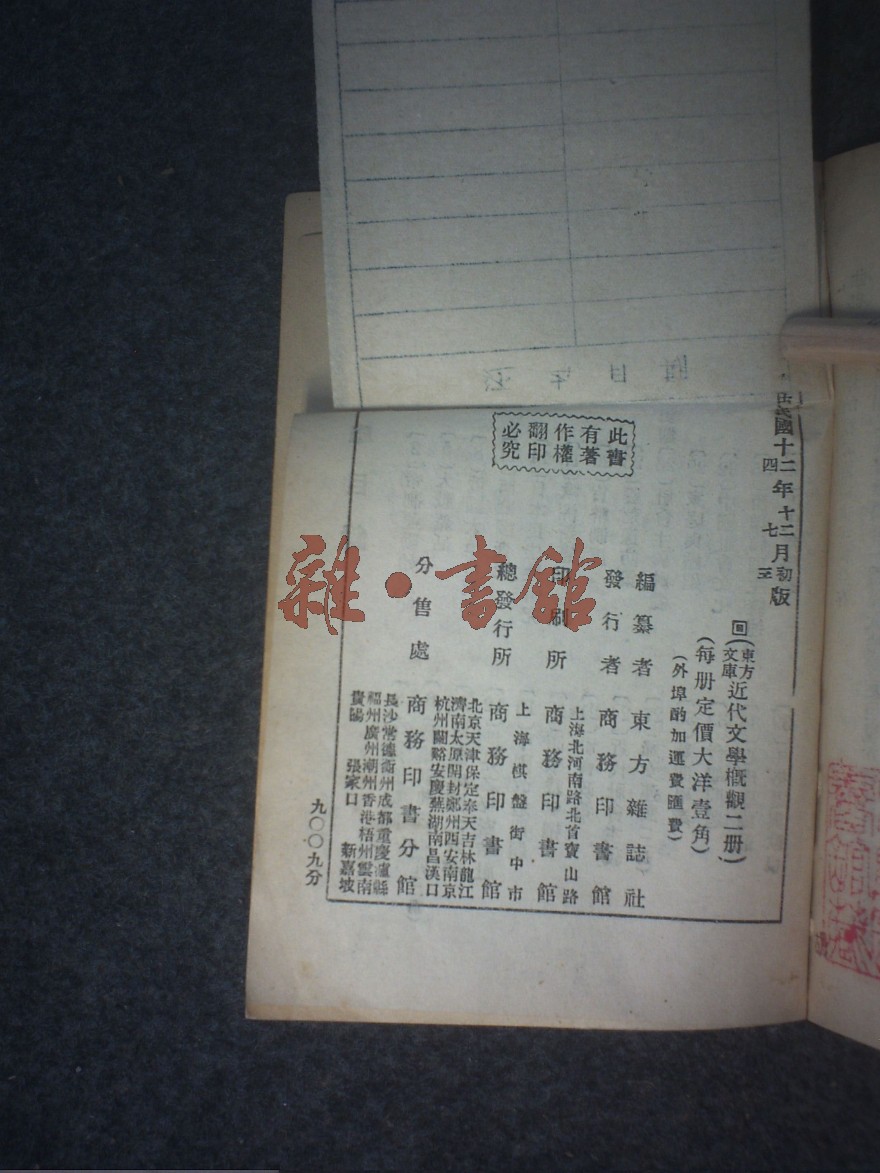 民國十二年十二月初版
四七三
(東方文庫)近代文學概觀二册)
(每册定價大洋壹角)
(外埠酌加運費匯費)
編纂者 東方雜誌社
發行者 商務印書館
上海北河南路北首寶山路
印刷所 商務印書館
上海棋盤街中市
總發行所 商務印書館
北京天津保定奉天吉林龍江
濟南太原開封鄭州西安南京
杭州蘭谿安慶蕪湖南昌漢口
分售處 商務印書分館
長沙常德衡州成都重慶瀘縣
福州廣州潮州香港梧州雲南
貴陽 張家口 新嘉坡
此書
有著
作權
翻印
必究
九〇〇九分
還書日期
雜·書館